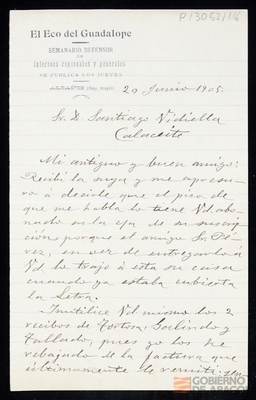 P/3052/116
El Eco del Guadalope
SEMANARIO DEFENSOR
DE
Intereses regionales y generales
SE PUBLICA LOS JUEVES
ALCAÑIZ
20 Junio 1905.
Sr. D. Santiago Vidiella
Calaceite
Mi antiguo y buen amigo:
Recibí la suya y me apresu-
ro á decirle, que el pico de
que me habla lo tiene Vd. abo-
nado en la de su suscrip-
ción, porque el amigo Sr. Pé-
rez, en vez de entregarlo á
Vd. lo trajo á esta su casa
cuando ya estaba cubierta
la letra.
Inutilice Vd. mismo los 2
recibos de Tortosa: Galindo y
Fallado, pues yo los he
rebajado de la factura que
últimamente le remití:
GOBIERNO
DE ARAGON